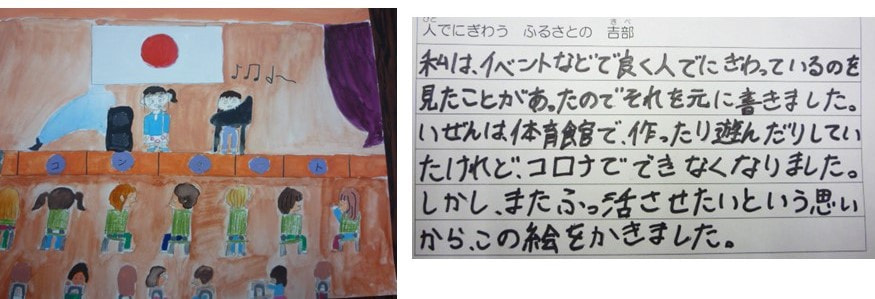 コンサート
人でにぎわう　ふるさとの　吉部
私は、イベントなどで良く人でにぎわっているのを
見たことがあったのでそれを元に書きました。
いぜんは体育館で、作ったり遊んだりしてい
たけれど、コロナでできなくなりました。
しかし、またふっ活させたいという思い
から、この絵をかきました。